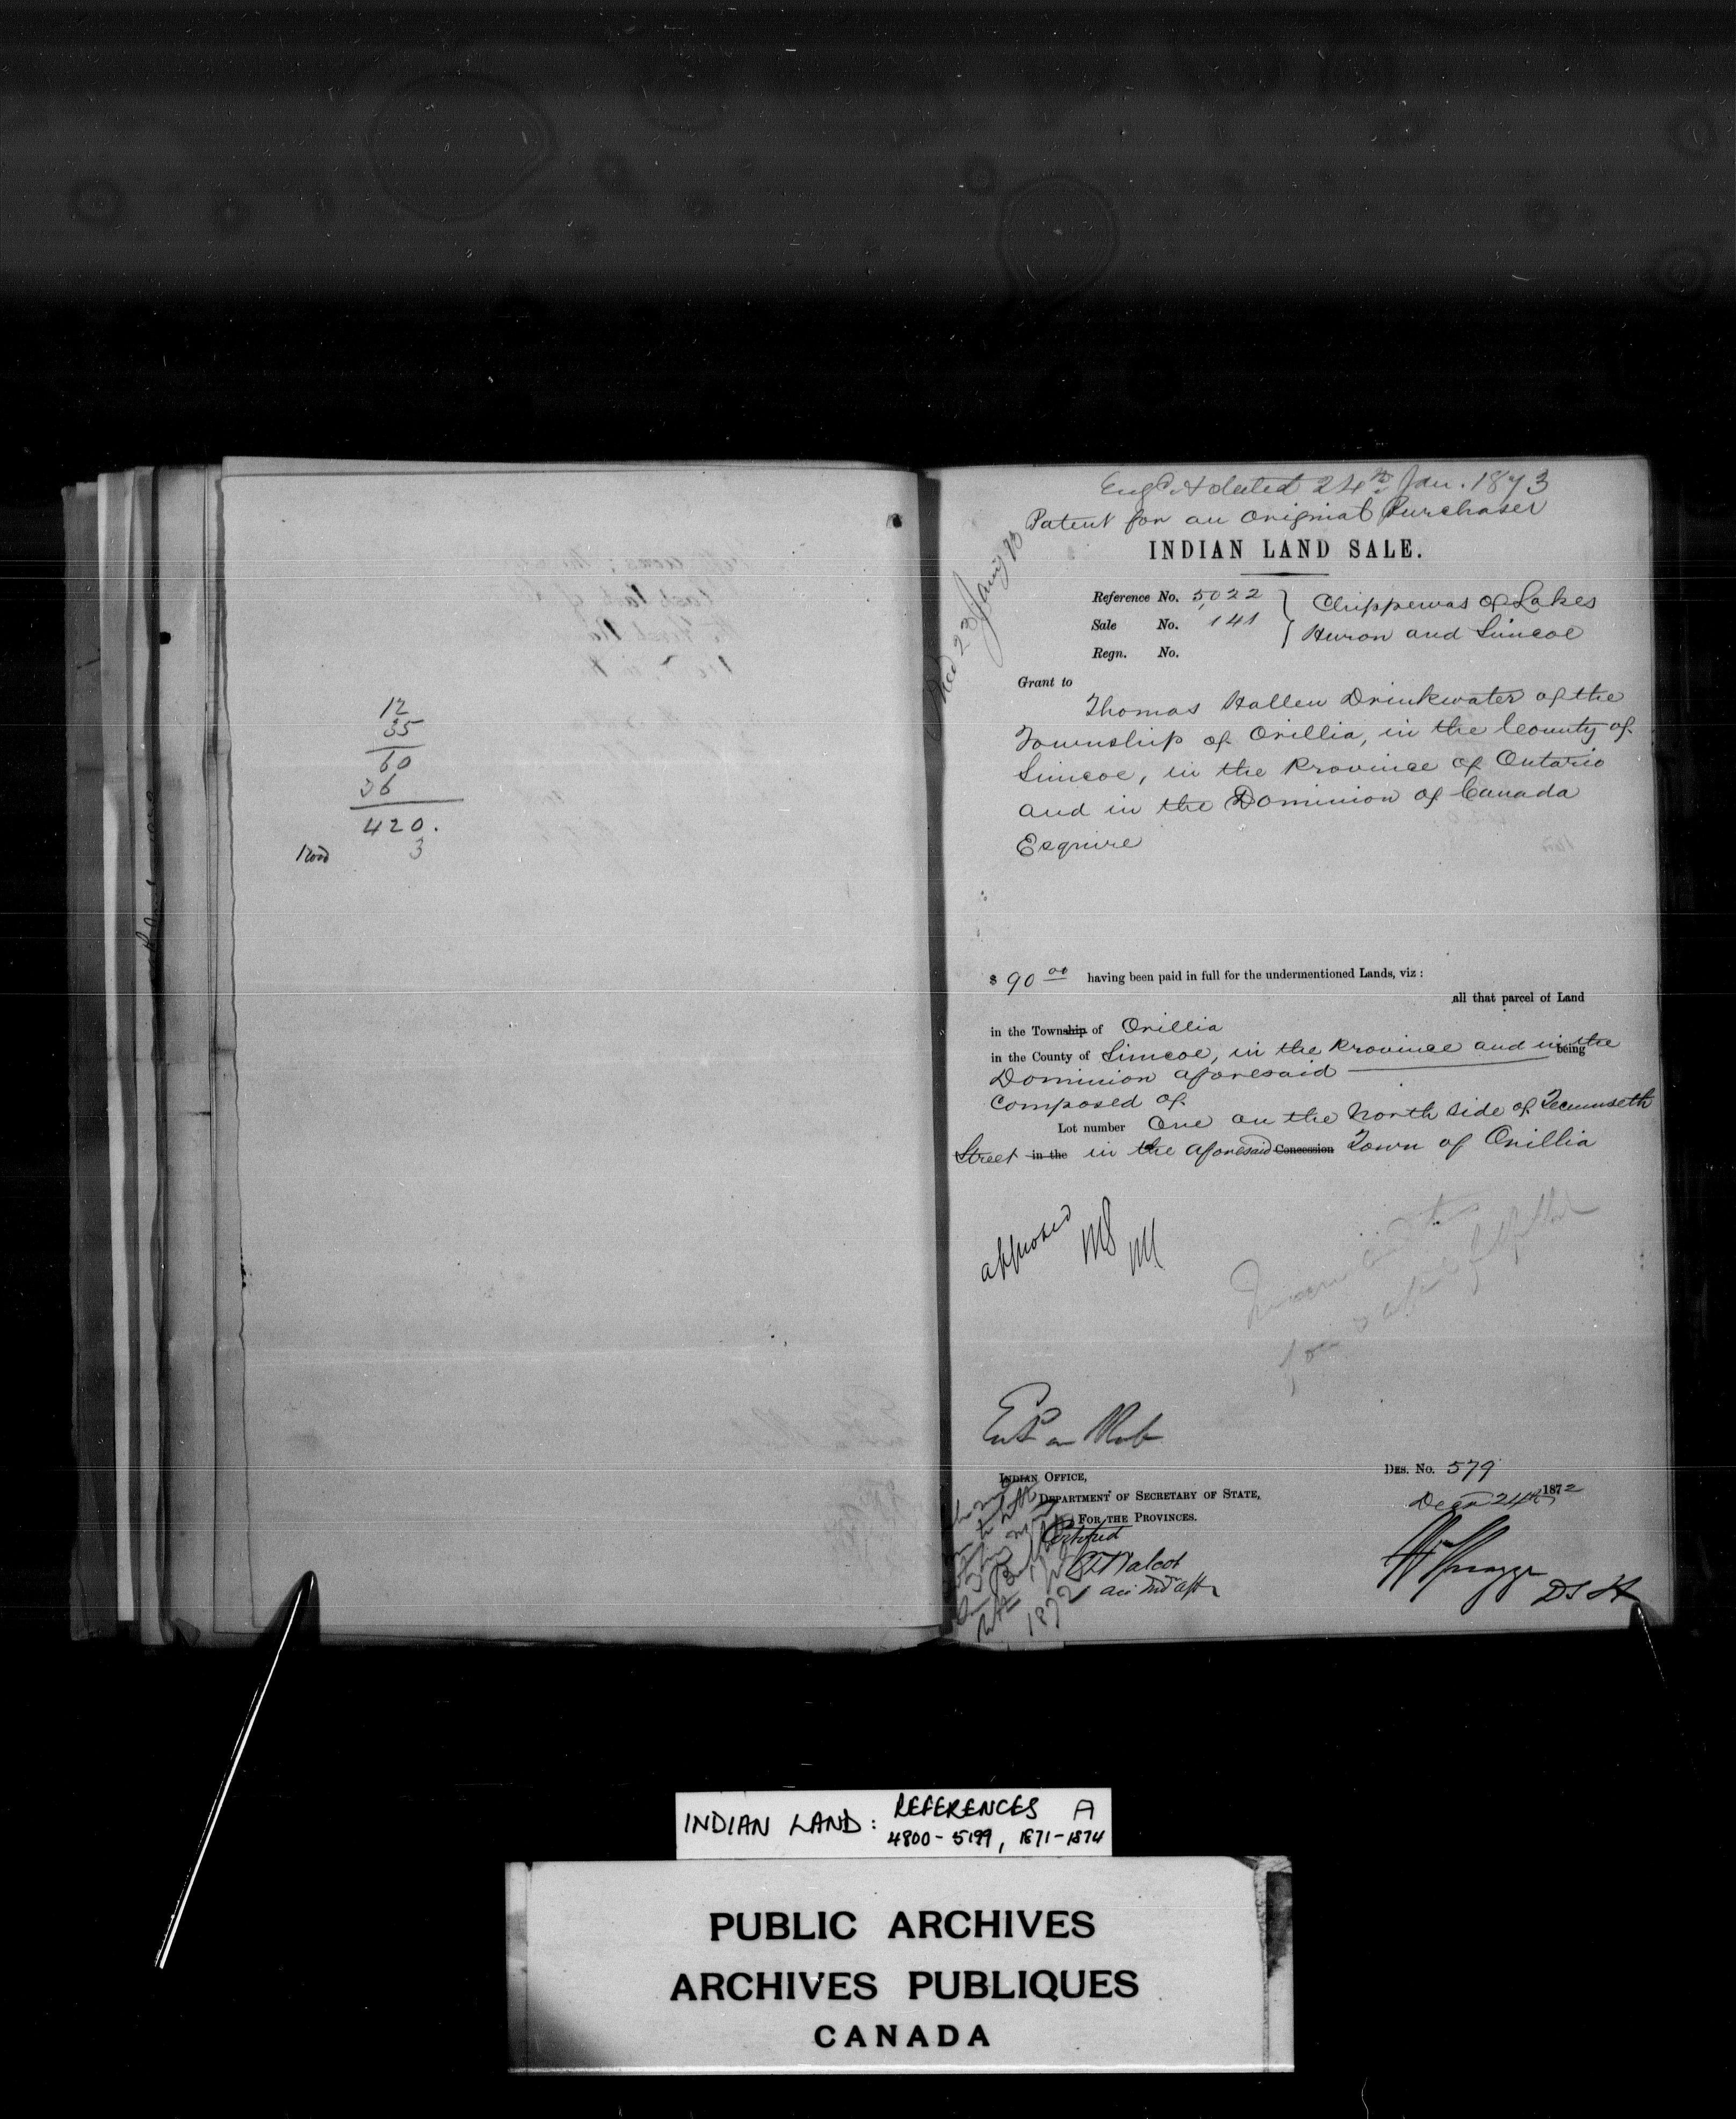 12
35
60
36
420.
3
Engd. & dated 24th Jan. 1873
Patent for an Original Purchaser
INDIAN LAND SALE.
Reference No. 5,022
Sale No. 141
Regn. No.
Chippewas of Lakes
Huron and Simcoe
23 Jany 73
Grant to
Thomas Hallen Drinkwater of the
Township of Orillia, in the County of
Simcoe, in the Province of Ontario
and in the Dominion of Canada
Esquire
$ 90 00 having been paid in full for the undermentioned Lands, viz :
all that parcel of Land
in the Township of Orillia
in the County of Simcoe, in the Province and in the being
Dominion aforesaid
composed of
Lot number One on the North side of Tecumseth
Street in the in the aforesaid Concession Town of Orillia
approved
for
INDIAN OFFICE,
DEPARTMENT OF SECRETARY OF STATE,
FOR THE PROVINCES.
Certified
1872
DES. No. 579
Decr 24th 1872
INDIAN LAND: REFERENCES A
4800-5199, 1871-1874
PUBLIC ARCHIVES
ARCHIVES PUBLIQUES
CANADA